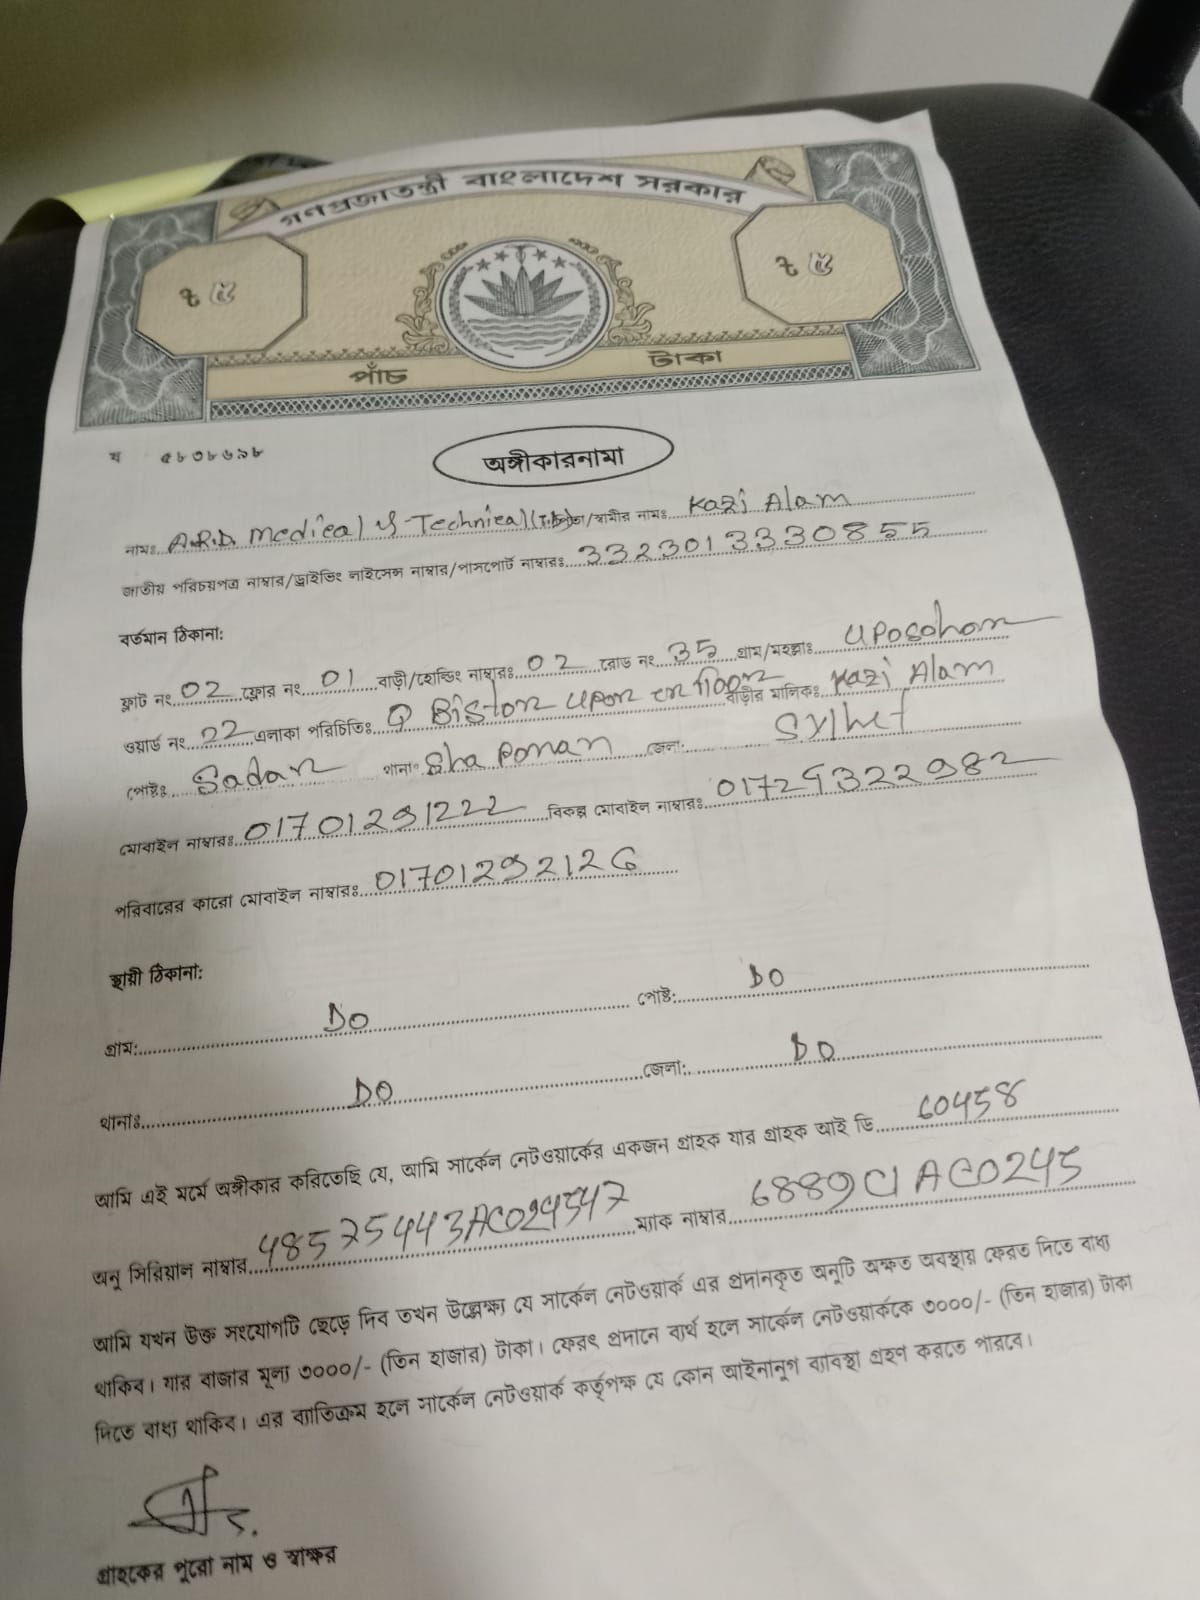 গণপ্রজাতন্ত্রী বাংলাদেশ সরকার
৳ ৫ ৳ ৫
পাঁচ টাকা
অঙ্গীকারনামা
নামঃ A.R.D. Medical & Technical স্বামীর নামঃ Kazi Alam
জাতীয় পরিচয়পত্র নাম্বার/ড্রাইভিং লাইসেন্স নাম্বার/পাসপোর্ট নাম্বারঃ 3323013330855
বর্তমান ঠিকানা:
ফ্লাট নং 02 ফ্লোর নং 01 বাড়ী/হোল্ডিং নাম্বারঃ 02 রোড নং 35 গ্রাম/মহল্লাঃ Uposohor
ওয়ার্ড নং 22 এলাকা পরিচিতিঃ বাড়ীর মালিকঃ Kazi Alam
পোষ্টঃ Sadar থানাঃ Sha Poran জেলা: Sylhet
মোবাইল নাম্বারঃ 01701291222 বিকল্প মোবাইল নাম্বারঃ 01729322982
পরিবারের কারো মোবাইল নাম্বারঃ 01701292126
স্থায়ী ঠিকানা:
গ্রাম: DO পোষ্ট: DO
থানাঃ DO জেলা: DO
আমি এই মর্মে অঙ্গীকার করিতেছি যে, আমি সার্কেল নেটওয়ার্কের একজন গ্রাহক যার গ্রাহক আই ডি 60458
অনু সিরিয়াল নাম্বার 48575443AC024547 ম্যাক নাম্বার 6889C1AC0245
আমি যখন উক্ত সংযোগটি ছেড়ে দিব তখন উল্লেক্ষ্য যে সার্কেল নেটওয়ার্ক এর প্রদানকৃত অনুটি অক্ষত অবস্থায় ফেরত দিতে বাধ্য
থাকিব। যার বাজার মূল্য ৩০০০/- (তিন হাজার) টাকা। ফেরৎ প্রদানে ব্যর্থ হলে সার্কেল নেটওয়ার্ককে ৩০০০/- (তিন হাজার) টাকা
দিতে বাধ্য থাকিব। এর ব্যাতিক্রম হলে সার্কেল নেটওয়ার্ক কর্তৃপক্ষ যে কোন আইনানুগ ব্যাবস্থা গ্রহণ করতে পারবে।
গ্রাহকের পুরো নাম ও স্বাক্ষর